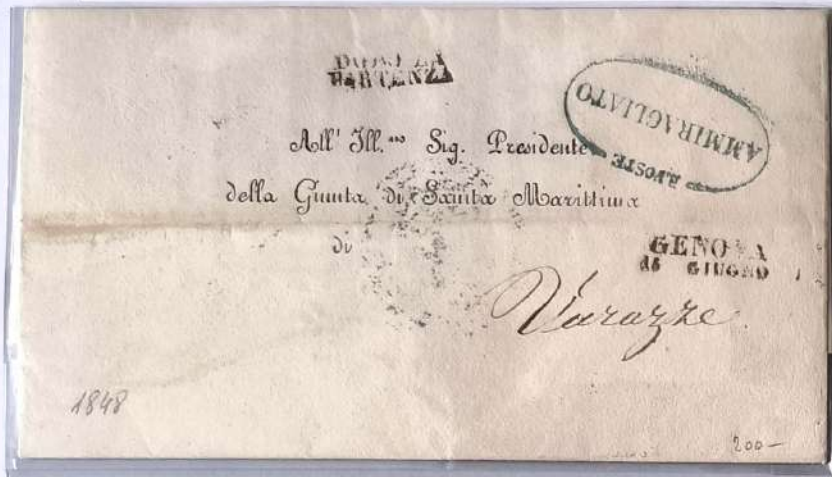 DOPO LA
PARTENZA
R. POSTE
AMMIRAGLIATO
All' Ill.mo Sig. Presidente
della Giunta di Sanità Marittima
di
GENOVA
16 GIUGNO
Varazze
1848
200-